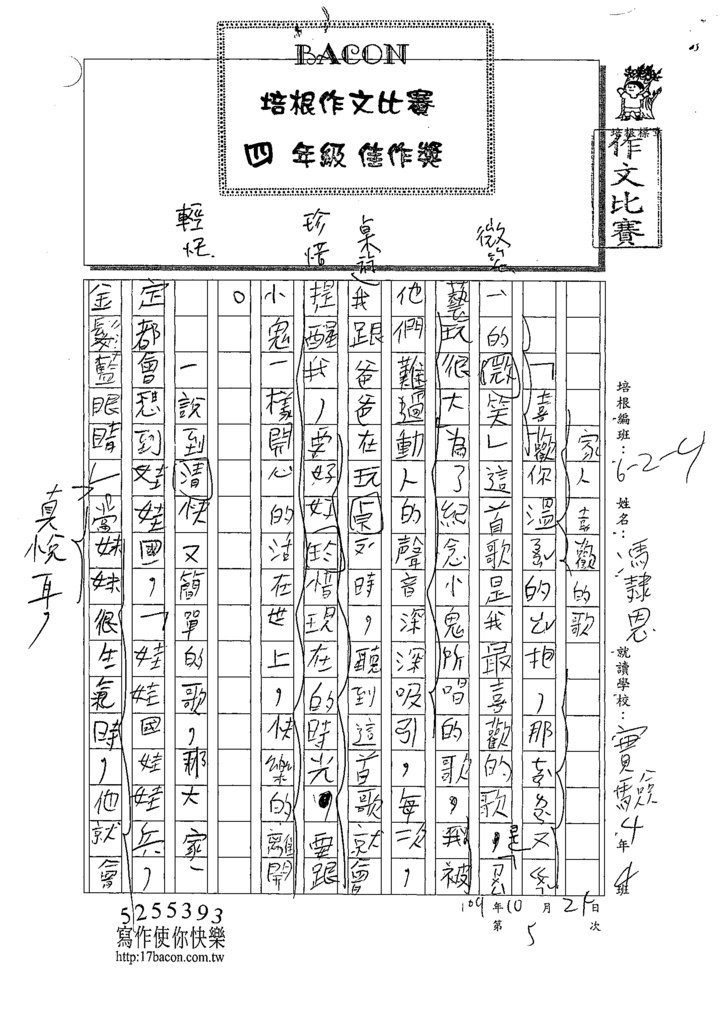 BACON
培根作文比賽
四 年級 佳作獎
培根標章
作文比賽
輕快
珍惜
桌
微笑
培根編班：6-2-4
姓名：馮隸恩
就讀學校：寶
4年
班
109年10月25日
第5次
家人喜歡的歌
「喜歡你溫的出抱，那又
的微笑」這首歌是我最喜歡的歌，是
藝玩很大為了紀念小鬼所唱的歌，我被
他們難過動人的聲音深深吸引，每一次，
我跟爸爸在玩桌 時，聽到這首歌就會
提醒我，要好好珍惜現在的時光，要跟
小鬼一樣開心的活在世上，快樂的離開
。
一說到清快又簡單的歌，那大家一
定都會想到娃娃國，「娃娃國娃娃兵，
金髮藍眼睛」當妹妹很生氣時，他就會
真悅耳，
5255393
寫作使你快樂
http:17bacon.com.tw